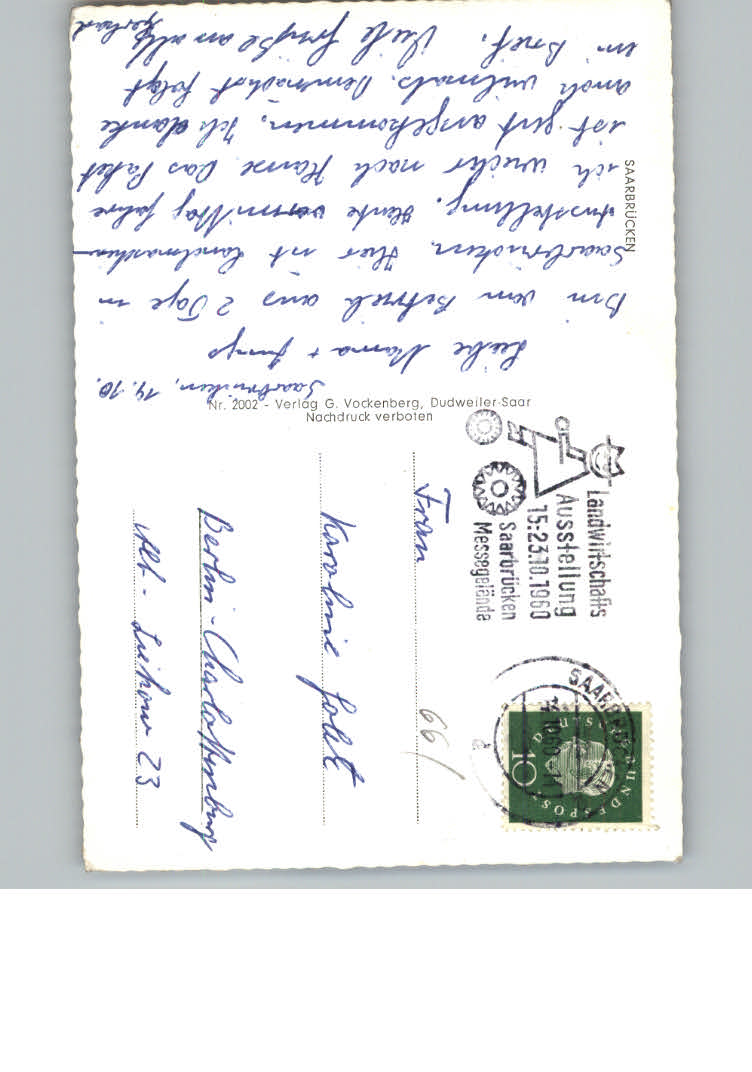 Saarbrücken, 14.10.
Liebe Mama + Jungs
Bin vom Betrieb aus 2 Tage in
Saarbrücken. Hier ist Landmaschinen-
Ausstellung. Heute vormittag fahre
ich wieder nach Hause. Das Paket
ist gut angekommen. Ich danke
auch vielmals. Demnächst folgt
ein Brief. Viele Grüße an alle
Gerhard
SAARBRÜCKEN
Nr. 2002 - Verlag G. Vockenberg, Dudweiler-Saar
Nachdruck verboten
Landwirtschafts
Ausstellung
15.-23.10.1960
Saarbrücken
Messegelände
SAARBRÜCKEN
14.10.60-11
DEUTSCHE BUNDESPOST
10
Frau
Karoline
Berlin-Charlottenburg
Alt-Lietzow 23
66/